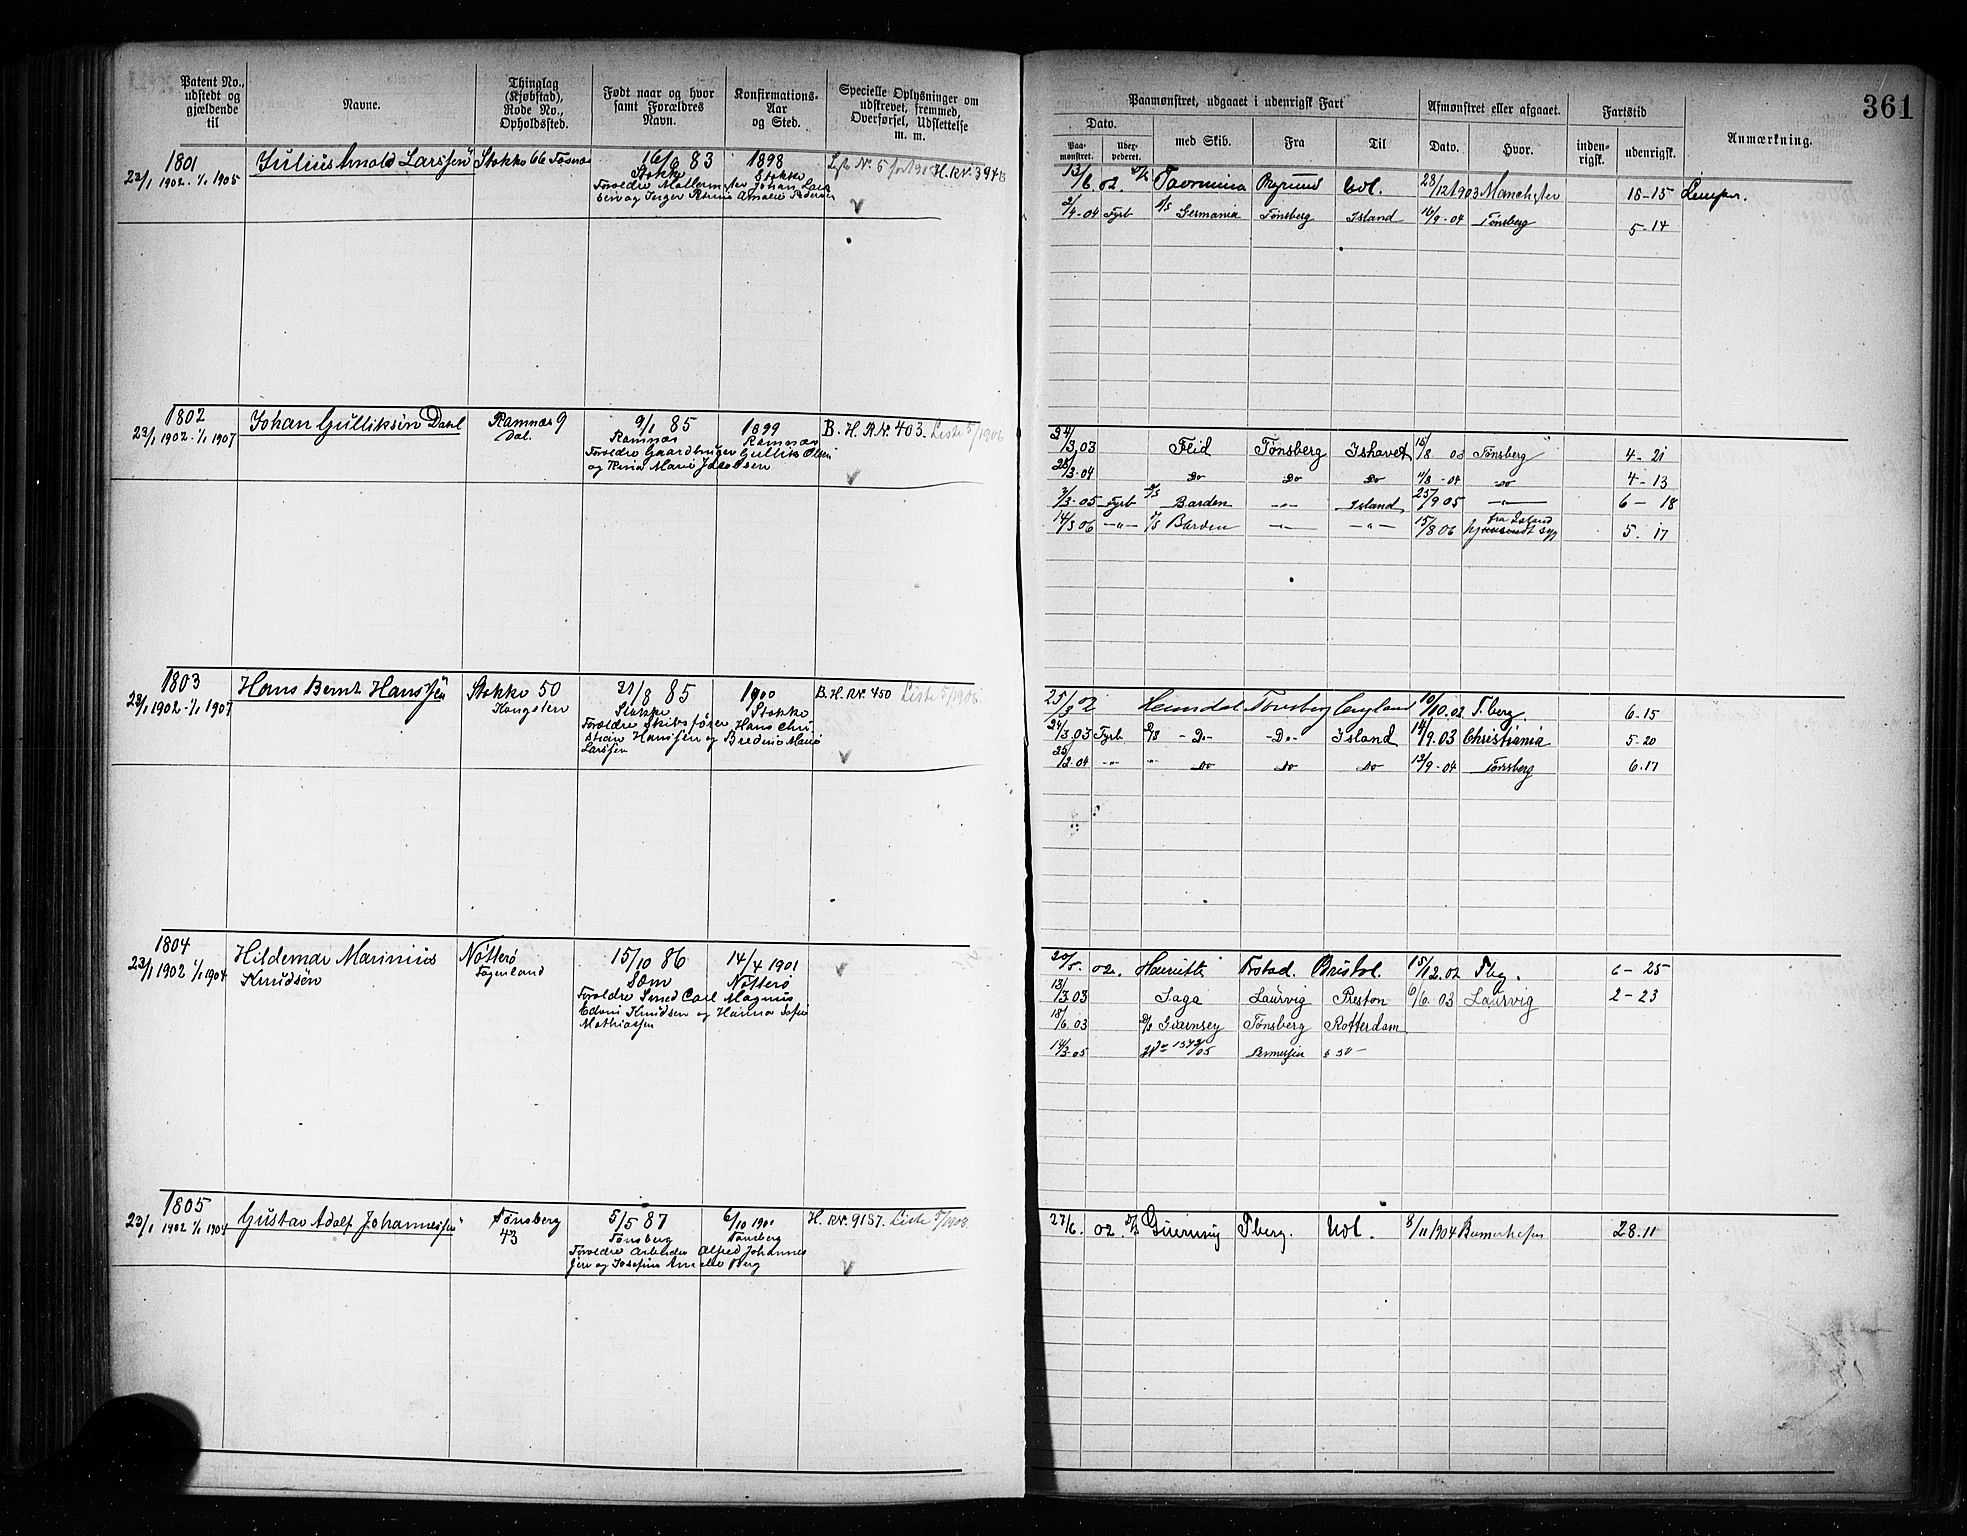 361
Patent No., udstedt og gjældende til
Navne.
Thinglag (Kjøbstad), Rode No., Opholdssted.
Født naar og hvor samt Forældres Navn.
Konfirmations-Aar og Sted.
Specielle Oplysninger om udskrevet, fremmed, Overførsel, Udslettelse m. m.
Paamønstret, udgaaet i udenrigsk Fart
Afmønstret eller afgaaet.
Fartstid
Anmærkning.
Dato.
med Skib.
Fra
Til
Dato.
Hvor.
inden-rigsk.
udenrigsk.
Paa-mønstret.
Uder-pederet.
1801
23/1 1902 - 1/1 1905
Julius Arnold Larssen
Stokke 66
16/6 83
Stokke
1898
Stokke
H. R. Nr. 394
13/6 02. Taormina Udl. 28/12 1903 Manchester 18-15
2/4-04 Fyrb D/S Germania Tønsberg Island 16/9-04 Tønsberg 5-14
1802
23/1 1902 - 1/1 1907
Johan Gulliksen Dahl
Ramnæs 9
Dal.
9/1 85
Ramnæs
1899
Ramnæs
Forældre Gaardbruger Gullik Olsen
og Marie Jacobsen
B. H. R. Nr. 403. Liste 5/1906
24/3 03 Tønsberg Ishavet 15/8 03 Tønsberg 4-21
25/3-04 Do Do Do 11/8-04 Do 4-13
3/3-05 Fyrb D/S Barden -"- Island 25/9 05 -"- 6-18
14/3 06 -"- D/S Barden -"- -"- 15/8 06 fra Island hjemsendt syg 5-17
1803
23/1 1902 - 1/1 1907
Hans Bernt Hanssen
Stokke 50
31/8 85
Stokke
1900
Stokke
Forældre Skibsfører Hans Chri
stian Hanssen og Bredine Marie
Larssen
B. H. R. Nr. 450 Liste 5/1906
25/3 02 Heimdal Tønsberg England 10/10.02 T.berg. 6-15
24/3 03 Fyrb D/S -Do- -Do- Island 14/9.03 Christiania 5-20
25/2 04 -"- -"- Do Do Do 12/9-04 Tønsberg 6-17
1804
23/1 1902 1/1 1904
Hildemar Marinius
Knudsen
Nøtterø
15/10 86
Sem
14/4 1901
Nøtterø
Forældre Smed Carl Magnus
Edvin Knudsen og Hanna Sofie
Mathiassen
20/5. 02. Bristol. 15/12.02 Tbg. 6-25
13/3 03 Saga Laurvig Preston 6/6.03 Laurvig 2-23
18/6 03 D/S Guernsey Tønsberg Rotterdam
14/3-05
1805
23/1 1902 1/1 1904
Gustav Adolf Johannessen
Tønsberg
43
5/5 87
Tønsberg
6/10 1901
Tønsberg
Forældre Arbeider Alfred Johannes
sen og Josefine Amalie Berg
H. R. Nr. 9187. Liste 5/1908.
27/6. 02. D/S Tberg. Udl. 8/11 1904 28-11